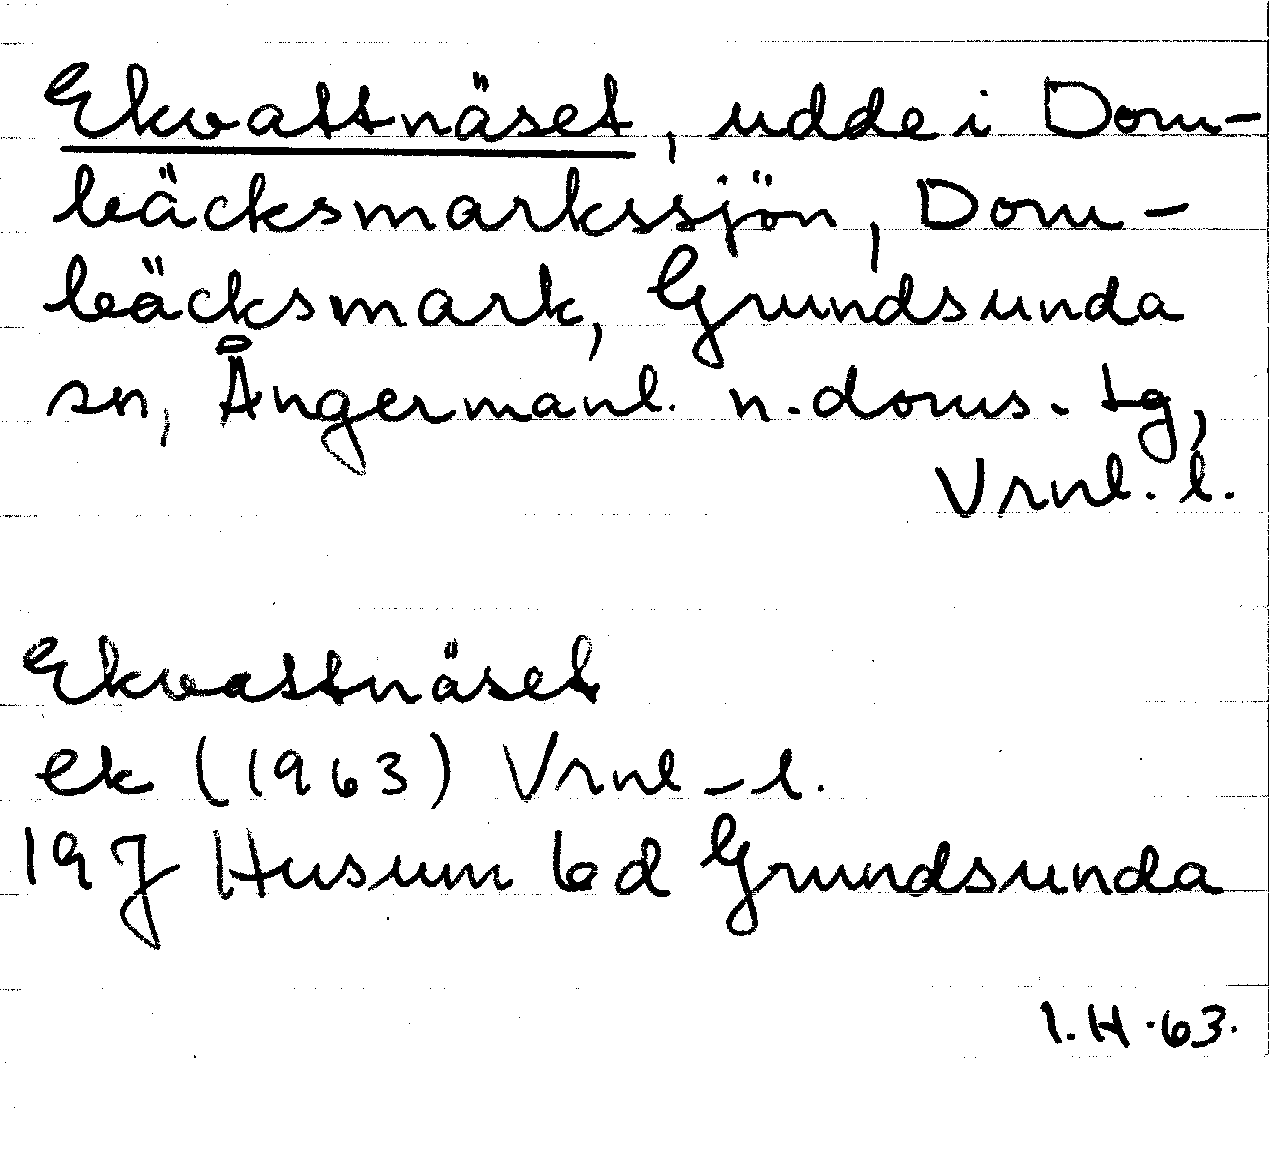 Ekvattnäset, udde i Dom-
bäcksmarkssjön, Dom-
bäcksmark, Grundsunda
sn, Ångermanl. n. doms. tg,
Vrnl. l.
Ekvattnäset
ek (1963) Vrnl - l.
19J Husum 6d Grundsunda
I.H.63.